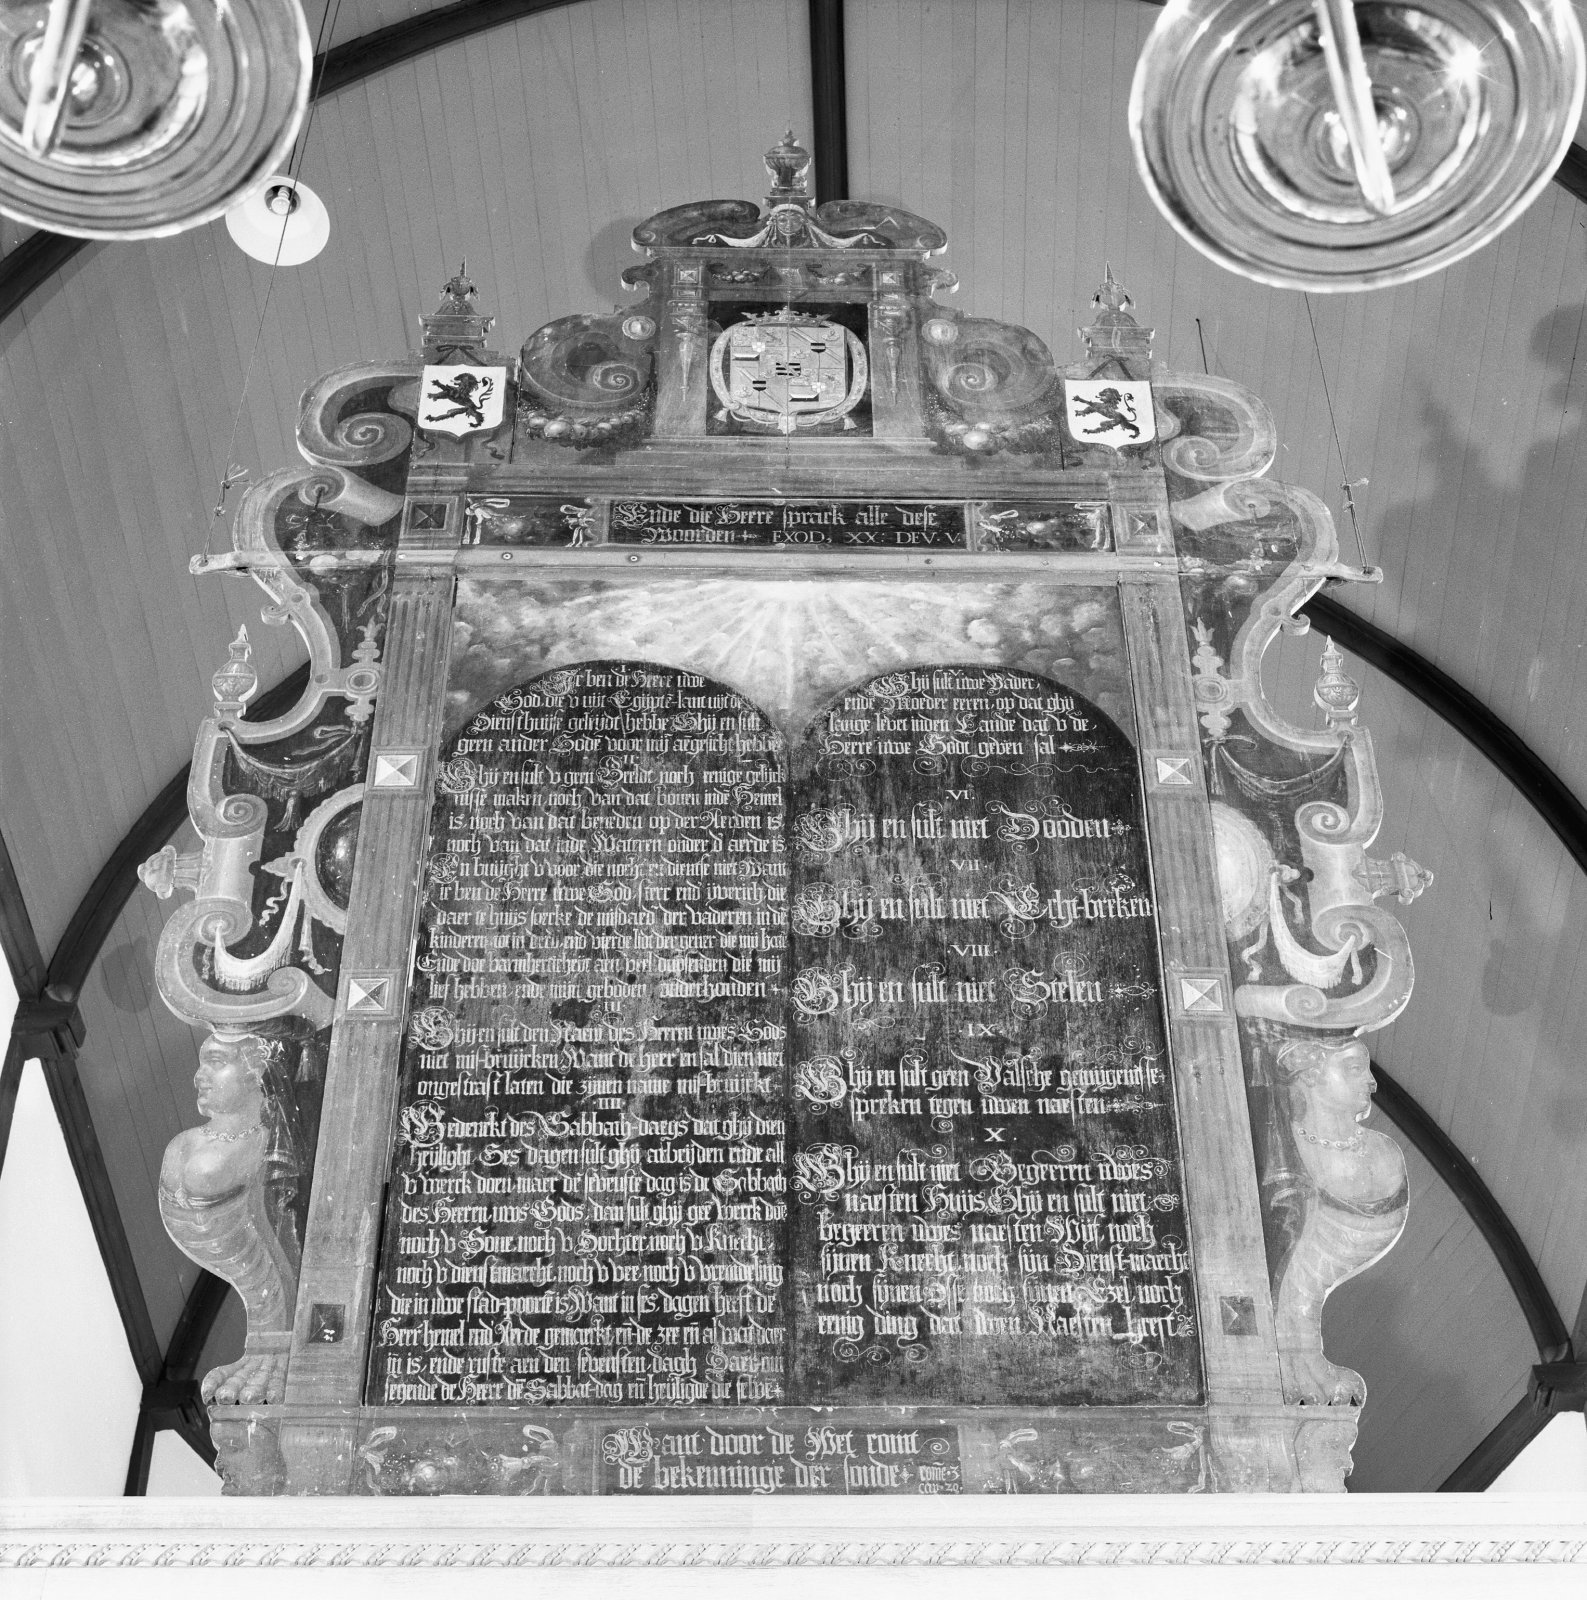 Ende die Heere sprack alle dese
Woorden EXOD, XX: DEV. V
I
Ic ben de Heere uwe
God, die v uijt Egijpte-lant uijt de
Diensthuijse geleijdt hebbe Ghij en sult
geen ander Gode voor mij aengesicht hebbe.
II
Ghij en sult v geen Beeldt noch eenige gelijck
nisse maken noch van dat boven inde Hemel
is, noch van dat beneden op der Aerden is,
noch van dat inde Wateren onder d'aerde is.
En buijcht v voor die niet, en dient haer niet Want
ic ben de Heere uwe God, sterc end iverich die
daer te huis soecke de misdaed der vaderen in de
kinderen tot in derde end vierde lidt der gener die mij haten
Ende doe barmherticheijt aen veel duijsenden die mij
lief hebben, ende mijn geboden onderhouden
III
Ghij en sult den Naem des Heeren uwes Gods
niet mis-bruijcken, Want de Heer' en sal dien niet
ongestraft laten die zijnen name mis-bruijckt.
IIII
Gedenckt des Sabbath-daegs dat ghij dien
heijligt. Ses dagen sult ghij arbeijden ende all
v werck doen, maer de sevenste dag is de Sabbath
des Heeren uws Gods, dan sult ghij gee werck doe
noch v Sone, noch v Dochter, noch v Knecht,
noch v dienstmaecht, noch v vee, noch v vremdeling
die in uwe stad-poorte is, Want in ses dagen heeft de
Heer hemel end Aerde gemaeckt en de zee en al wat daer
in is, ende ruste aen den sevensten dagh Daer-om
segende de Heere de Sabbat-dag en heijligde die selve
V
Ghij sult uwe Vader,
ende Moeder eeren, op dat ghij
lange levet inden Lande dat v de
Heere uwe Godt geven sal
VI.
Ghij en sult niet Dooden
VII
Ghij en sult niet Echt-breken
VIII.
Ghij en sult niet Stelen
IX
Ghij en sult geen Valsche getuijgenisse
spreken tegen uwen naesten
X.
Ghij en sult niet Begeeren uwes
naesten Huis, Ghij en sult niet
begeeren uwes naesten Wijf, noch
sijnen Knecht, noch sijn Dienst-maecht
noch sijnen Osse, noch sijnen Ezel, noch
eenig ding dat uwen Naesten heeft
Want door de Wet comt
de bekenninge der sonde Rome. 3
cap. 20.